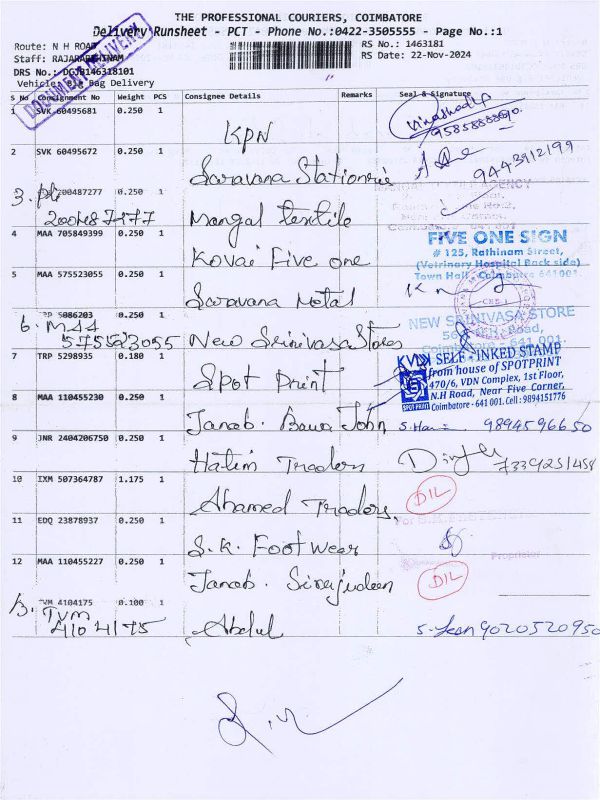 THE PROFESSIONAL COURIERS, COIMBATORE
Delivery Runsheet - PCT - Phone No.:0422-3505555 - Page No.:1
Route: N H ROAD
RS No.: 1463181
Staff: RAJARATHINAM
RS Date: 22-Nov-2024
DRS No.: DGJB146318101
Vehicle Big Bag Delivery
DOCUMENT DELIVERY
S No Consignment No Weight PCS Consignee Details Remarks Seal & Signature
1 SVK 60495681 0.250 1
KPN
2 SVK 60495672 0.250 1
Saravana Stationries
9443912199
3. 200487277 0.250 1
Mangal Textile
4 MAA 705849399 0.250 1
Kovai Five one
FIVE ONE SIGN
# 125, Rathinam Street,
(Vetrinary Hospital Back side)
Town Hall, Coimbatore 641001.
5 MAA 575523055 0.250 1
Saravana Metal
6. TRP 5086203 0.250 1
MAA
575523055 New Srinivasa Stores
NEW SRINIVASA STORE
7 TRP 5298935 0.180 1
Spot Print
KVDK SELF-INKED STAMP
from house of SPOTPRINT
470/6, VDN Complex, 1st Floor,
N.H Road, Near Five Corner,
Coimbatore - 641 001. Cell : 9894151776
SPOT PRINT
8 MAA 110455230 0.250 1
Janab. Bawa John
9894596650
9 JNR 2404206750 0.250 1
Hatim Traders
7339251458
10 IXM 507364787 1.175 1
Ahamed Traders,
DIL
11 EDQ 23878937 0.250 1
S.K. Footwear
Proprietor
12 MAA 110455227 0.250 1
Janab. Sirajudeen
DIL
13. TVM 4104175 0.100 1
TVM
4104175 Abdul
9020520950